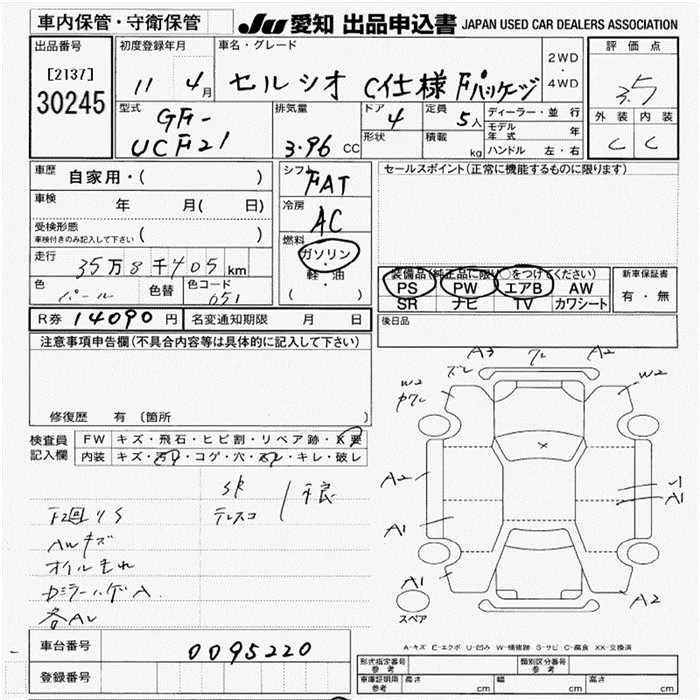 車内保管・守衛保管
JU 愛知 出品申込書 JAPAN USED CAR DEALERS ASSOCIATION
出品番号
[2137]
30245
初度登録年月
11 4月
車名・グレード
セルシオ C仕様 Fパッケージ
2WD
・
4WD
評価点
3.5
外装 内装
C C
型式
GF-
UCF21
排気量
3.96 CC
ドア
4
形状
定員
5人
積載
kg
ディーラー・並行
モデル年式 年
ハンドル 左・右
車歴
自家用・( )
車検
年 月( 日)
受検形態
車検付きのみ記入して下さい ( )
走行
35万8千405km
色
パール
色替
色コード
051
シフト
FAT
冷房
AC
燃料
ガソリン
・
軽・油
( )
セールスポイント(正常に機能するものに限ります)
装備品(純正品に限り○をつけてください)
PS PW エアB AW
SR ナビ TV カワシート
新車保証書
有・無
R券 14090円 名変通知期限 月 日
後日品
注意事項申告欄(不具合内容等は具体的に記入して下さい)
修復歴 有 〔箇所 〕
検査員
記入欄
FW キズ・飛石・ヒビ割・リペア跡・X要
内装 キズ・汚レ・コゲ・穴・スレ・キレ・破レ
SR
テレスコ
不良
F2回リS
AWキズ
オイルもれ
DミラーハゲA
各AU
A3 A2
ズレ
W2 W2
A2
A1 A1
A1
A2
スペア
A-キズ E-エクボ U-凹み W-補修跡 S-サビ C-腐食 XX-交換済
車台番号
0095220
登録番号
形式指定番号
参考
類別区分番号
参考
車庫証明用
参考
長さ cm 幅 cm 高さ cm